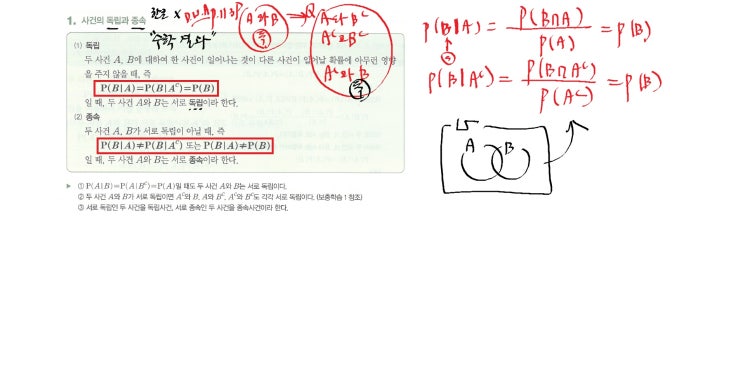 1. 사건의 독립과 종속
한글 X
A와 B
독
Q
A와 Bᶜ
Aᶜ와 Bᶜ
Aᶜ와 B
독
(1) 독립
두 사건 A, B에 대하여 한 사건이 일어나는 것이 다른 사건이 일어날 확률에 아무런 영향
을 주지 않을 때, 즉
P(B|A)=P(B|Aᶜ)=P(B)
일 때, 두 사건 A와 B는 서로 독립이라 한다.
(2) 종속
두 사건 A, B가 서로 독립이 아닐 때, 즉
P(B|A)≠P(B|Aᶜ) 또는 P(B|A)≠P(B)
일 때, 두 사건 A와 B는 서로 종속이라 한다.
▶ ① P(A|B)=P(A|Bᶜ)=P(A)일 때도 두 사건 A와 B는 서로 독립이다.
② 두 사건 A와 B가 서로 독립이면 Aᶜ와 B, A와 Bᶜ, Aᶜ와 Bᶜ도 각각 서로 독립이다. (보충학습 1 참조)
③ 서로 독립인 두 사건을 독립사건, 서로 종속인 두 사건을 종속사건이라 한다.
P(B|A) = P(B∩A) / P(A) = P(B)
P(B|Aᶜ) = P(B∩Aᶜ) / P(Aᶜ) = P(B)
A B